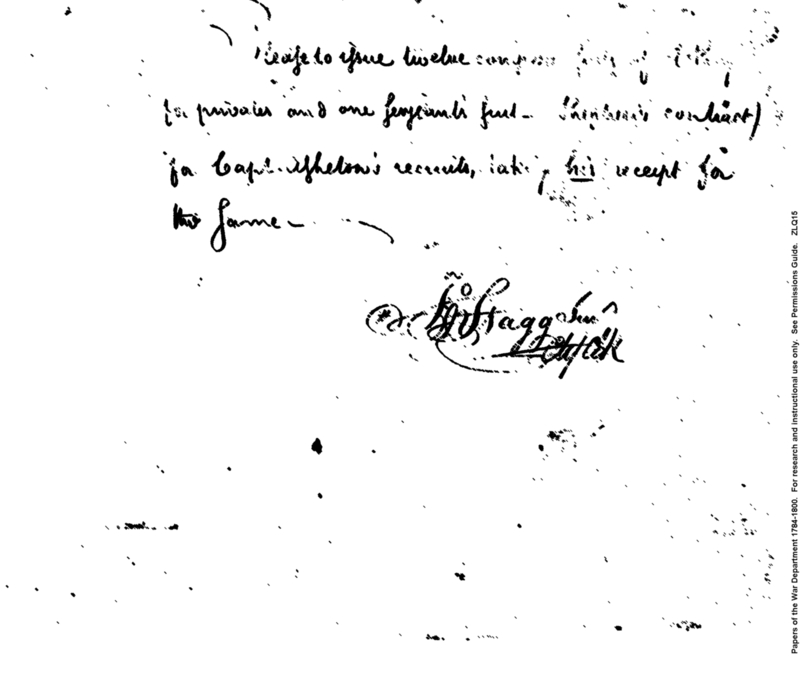 Please to issue twelve compleat suits of Clothing
for privates and one Sergeants suit — Stephens's contract)
for Capt. recruits, taking his receipt for
the same —
Jno Stagg Jun
Ch Clk
Papers of the War Department 1784-1800. For research and instructional use only. See Permissions Guide. ZLQ15